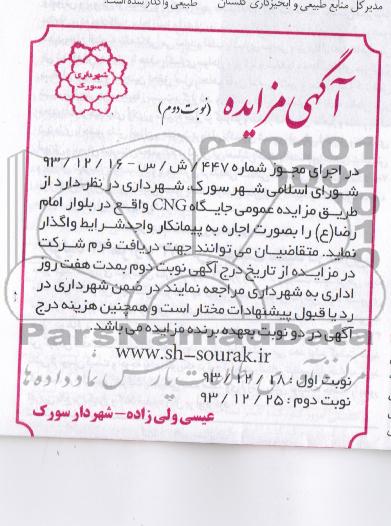 مدیر کل منابع طبیعی و آبخیزداری گلستان
طبیعی واگذار شده است.
شهرداری
سورک
آگهی مزایده (نوبت دوم)
در اجرای مجوز شماره ۴۴۷/ش/س - ۹۳/۱۲/۱۶
شورای اسلامی شهر سورک، شهرداری در نظر دارد از
طریق مزایده عمومی جایگاه CNG واقع در بلوار امام
رضا(ع) را بصورت اجاره به پیمانکار واجد شرایط واگذار
نماید. متقاضیان می توانند جهت دریافت فرم شرکت
در مزایده از تاریخ درج آگهی نوبت دوم بمدت هفت روز
اداری به شهرداری مراجعه نمایند در ضمن شهرداری در
رد یا قبول پیشنهادات مختار است و همچنین هزینه درج
آگهی در دو نوبت بعهده برنده مزایده می باشد.
www.sh-sourak.ir
نوبت اول : ۹۳/۱۲/۱۸
نوبت دوم : ۹۳/۱۲/۲۵
عیسی ولی زاده - شهردار سورک
ParsNamadData